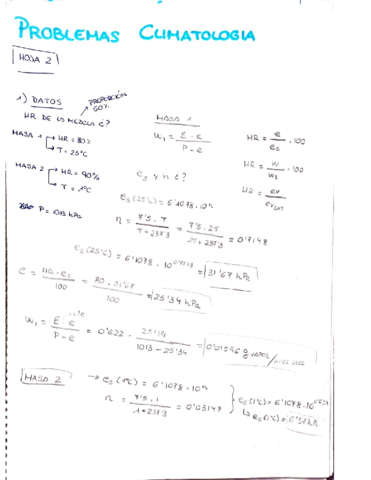 PROBLEMAS CLIMATOLOGIA
HOJA 2
1) DATOS
PROPORCIÓN 60%
HR DE LA MEZCLA C?
MASA 1 → HR = 80%
→ T = 25°C
MASA 2 → HR = 90%
→ T = 1°C
P = 1013 hPa
MASA 1
W₁ = E · e / P - e
HR = e / es · 100
HR = w / ws · 100
HR = ev / evsat
es y n e?
es(25°C) = 6'1078 · 10ⁿ
n = 7'5 · T / T + 237'3 = 7'5 · 25 / 25 + 237'3 = 0'7148
es(25°C) = 6'1078 · 10^0'7148 = 31'67 hPa
e = HR · es / 100 = 80 · 31'67 / 100 = 25'34 hPa
W₁ = E · e / P - e = 0'622 · 25'34 / 1013 - 25'34 = 0'01596 g vapor
MASA 2
→ es(1°C) = 6'1078 · 10ⁿ
n = 7'5 · 1 / 1 + 237'3 = 0'03147
es(1°C) = 6'1078 · 10
↳ es(1°C) =